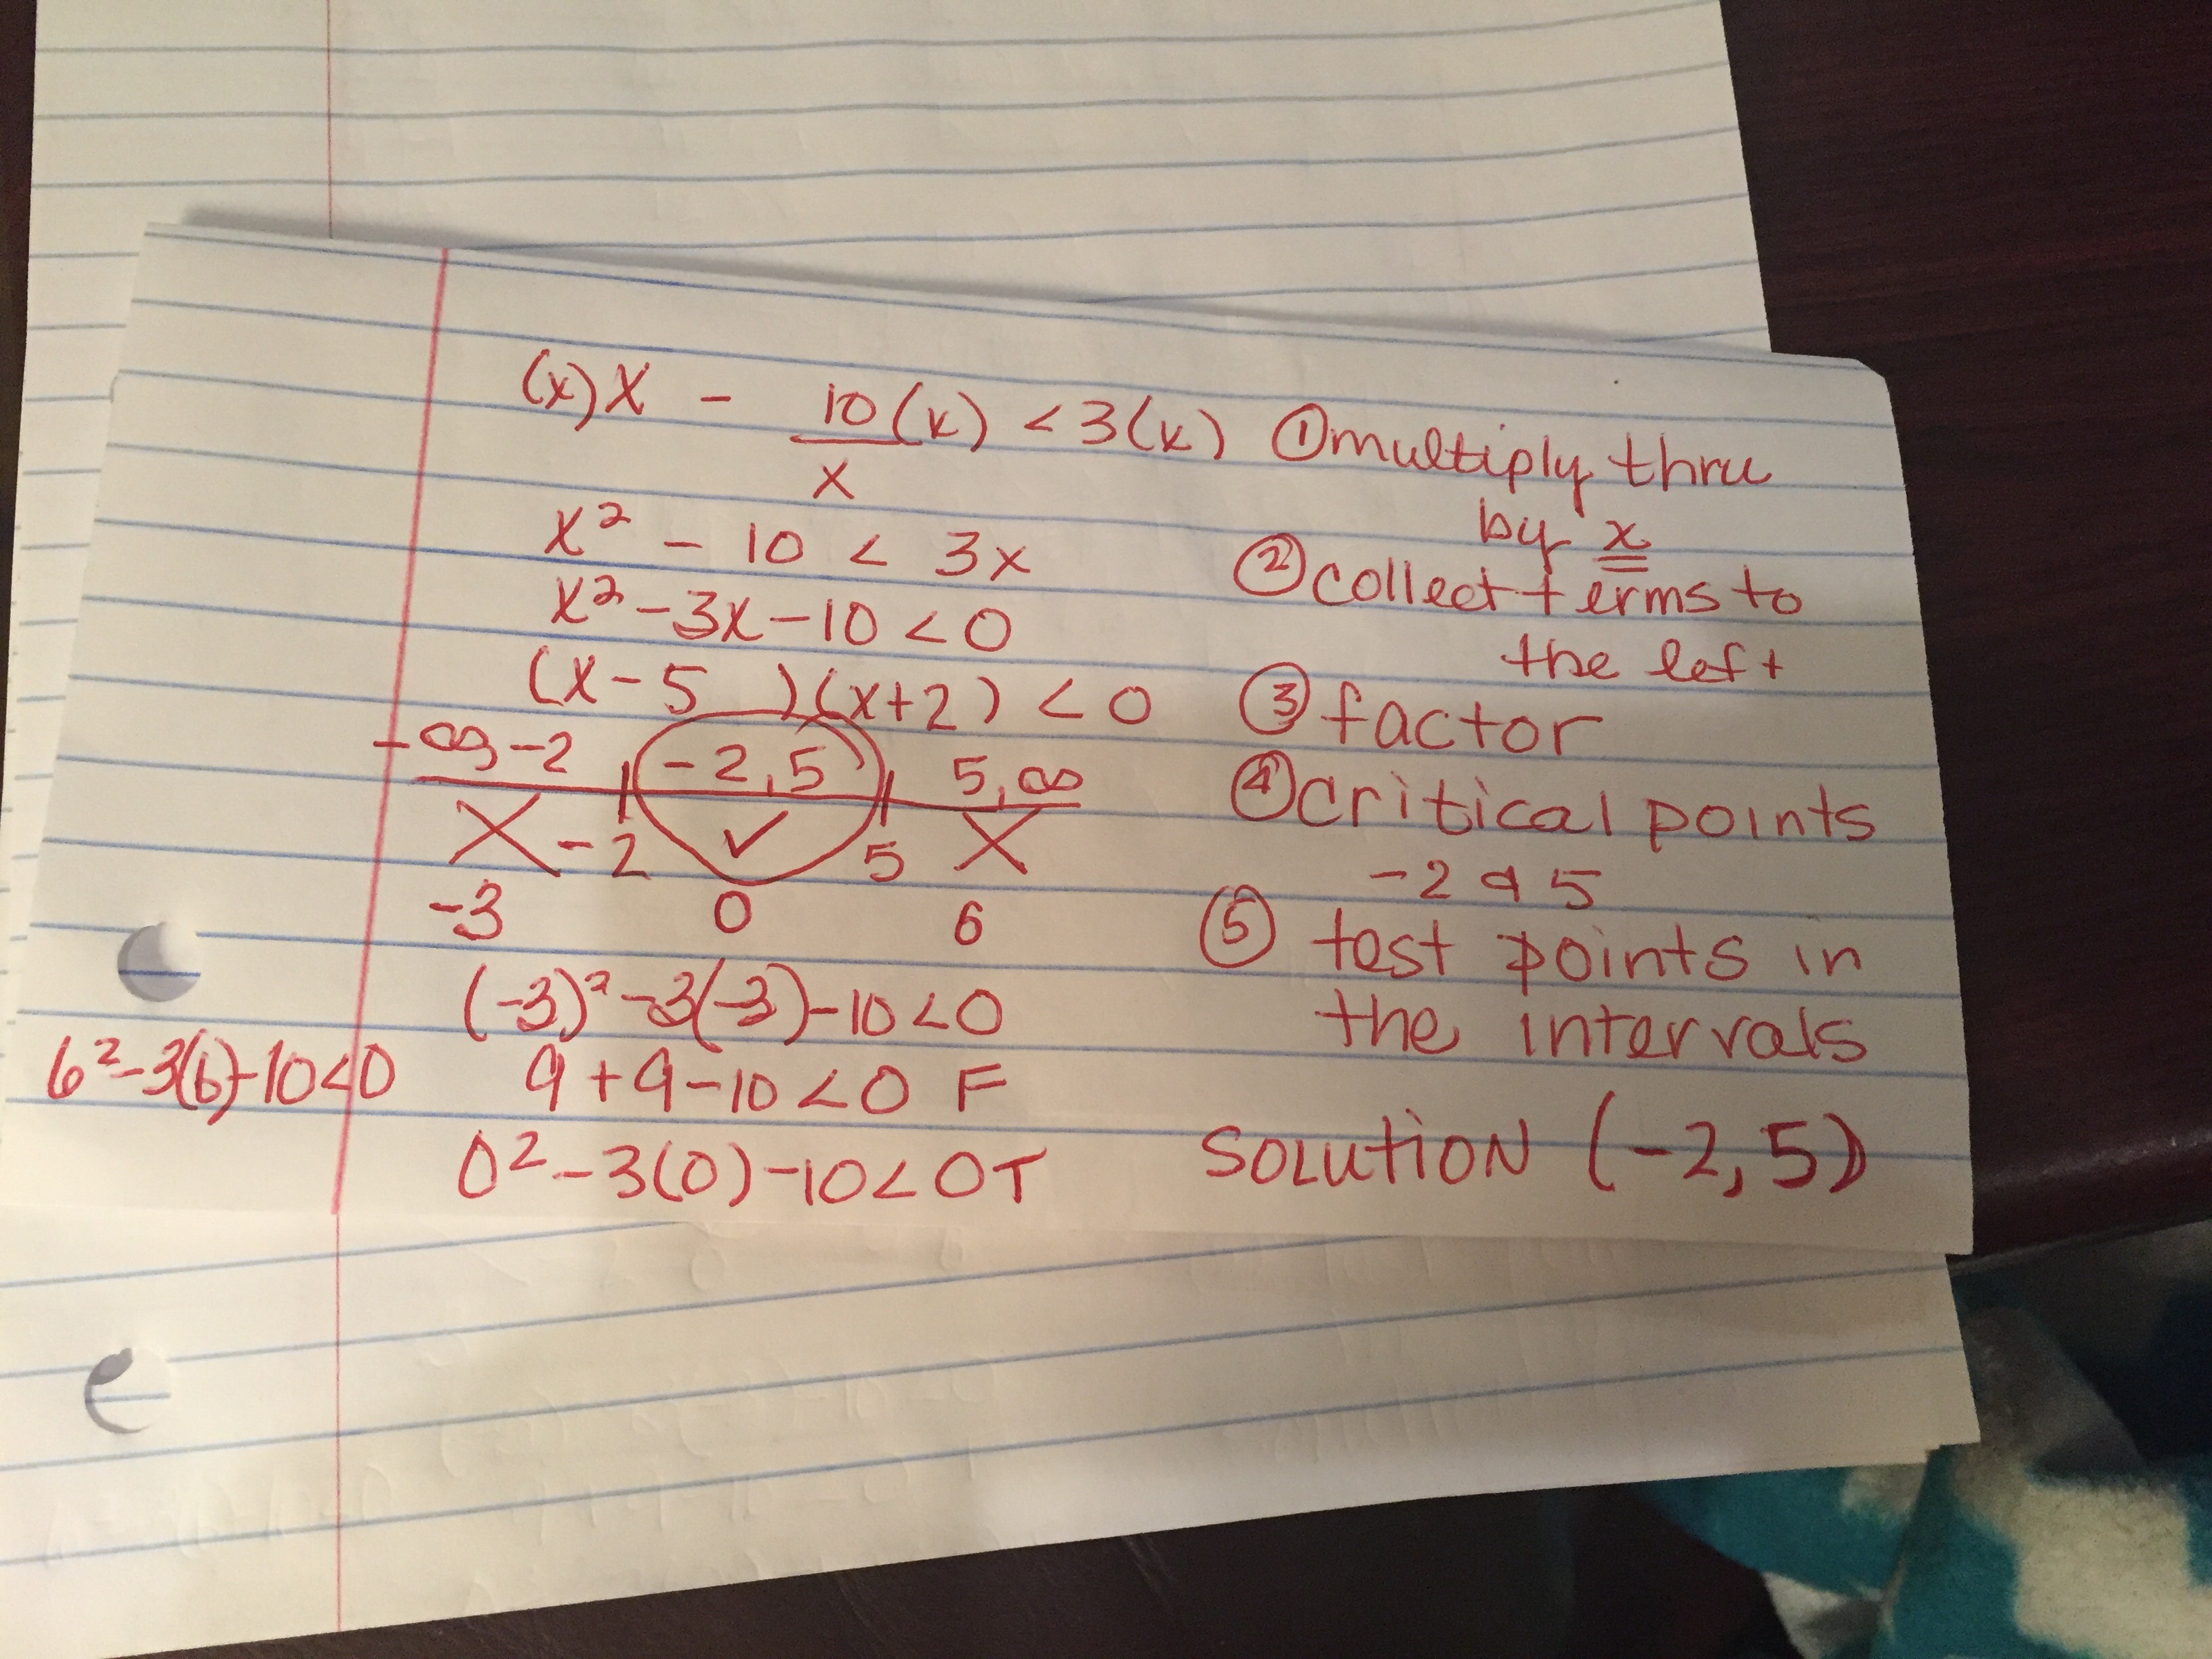 (x)X - 10(x)/x < 3(x) ① multiply thru
by x
x² - 10 < 3x ② collect terms to
the left
x² - 3x - 10 < 0
(x - 5 )(x + 2) < 0 ③ factor
-∞, -2 -2, 5 5, ∞ ④ critical points
X -2 ✓ 5 X
-2 & 5
-3 0 6 ⑤ test points in
the intervals
(-3)² - 3(-3) - 10 < 0
6² - 3(6) - 10 < 0 9 + 9 - 10 < 0 F
0² - 3(0) - 10 < 0 T SOLUTION (-2, 5)